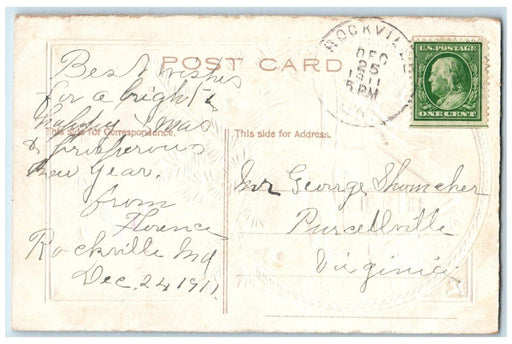 POST CARD
Best wishes
for a bright &
happy Xmas
This side for Correspondence.
& prosperous
New Year.
from
Florence
Rockville Md
Dec. 24 1911.
This side for Address.
Mr George Shumacher
Purcellville
Virginia
ROCKVILLE
DEC
25
1911
5 PM
U.S. POSTAGE
ONE CENT